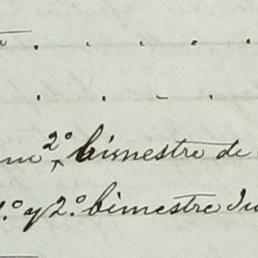 2º bimestre de
1.º y 2.º bimestre